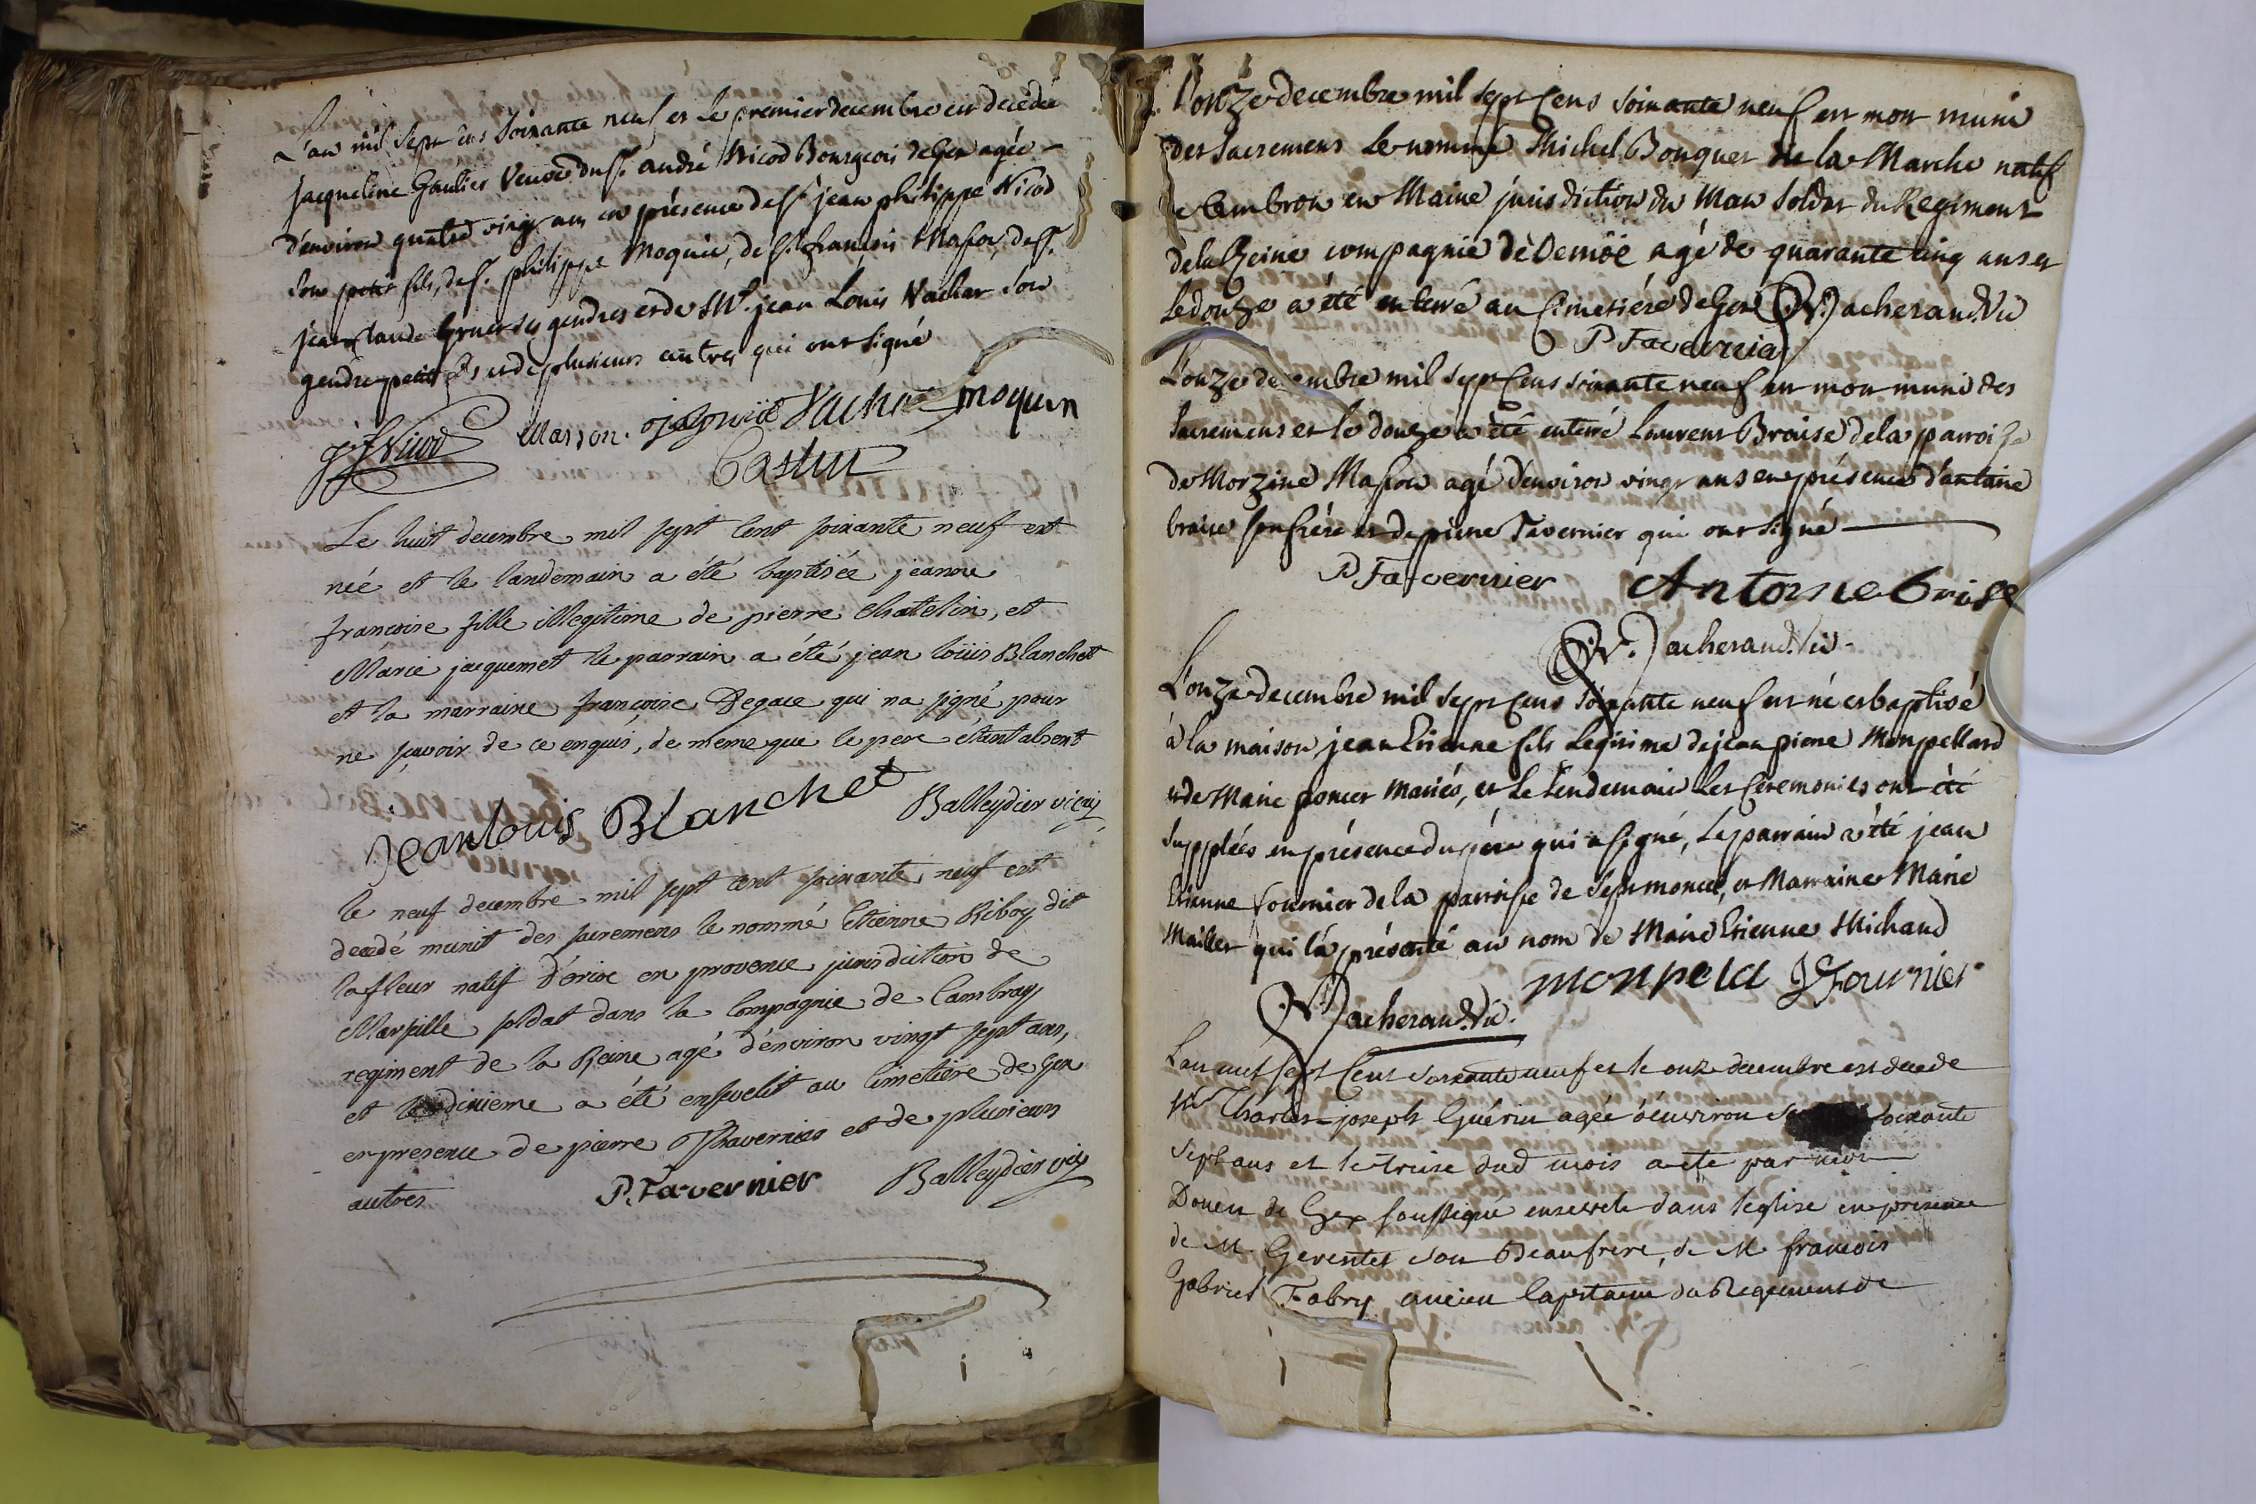 L'an mil sept cens soixante neuf et le premier decembre est décédée
jacqueline Gaulier Veuve du sr. andré Nicod Bourgeois de Gex agée
d'environ quatre vingt ans en présence de sr. jean philippe Nicod
son petit fils, de sr. philippe Moquin, de sr. françois Masson, de sr.
jean claude Gruet ses gendres et de Mr. jean Louis Vachat son
gendre petit fils et de plusieurs autres qui ont signé
jf Nicod Masson Vachat moquin
Castin
Le huit decembre mil sept cent soixante neuf est
née et le landemain a été baptisée jeanne
francoise fille illegitime de pierre Chatelin, et
Marie jacquemet le parrain a été jean loüis Blanchet
et la marraine francoise Degace qui na signé pour
ne savoir de ce enquis, de meme que le pere étant absent
Jeanlouis Blanchet Balleydier vic
le neuf decembre mil sept cent soixante neuf est
decedé munit des sacremens le nommé Etienne Riboy dit
lafleur natif d'érix en provence jurisdiction de
Marseille soldat dans la Compagnie de Cambray
regiment de la Reine agé d'environ vingt sept ans,
et le dixieme a été ensevelit au cimetiére de gex
en presence de pierre Thavernier et de plusieurs
autres P. Tavernier Balleydier vic
L'onze decembre mil sept cens soixante neuf est mort muni
des sacremens le nommé Michel Bouquet de la Marche natif
de Cambron en Maine jurisdiction du Man soldat du Regiment
de la Reine compagnie de Demöe agé de quarante cinq ans et
le douze a été enterré au Cimetiére de Gex Vacherand. Vic
P Tavernier
L'onze decembre mil sept cens soixante neuf est mort muni des
sacremens et le douze a été enterré Laurent Braise de la parroise
de Morzine Masson agé d'environ vingt ans en présence d'antoine
braise son frére et de pierre Tavernier qui ont signé
P Tavernier Antoine brise
Vacherand. Vic
L'onze decembre mil sept cens soixante neuf est né et baptisé
à la maison jean Etienne fils legitime de jean pierre Monpellard
et de Marie poncet mariés, et le lendemain les ceremonies ont été
supplées en présence du pére qui a signé, Le parrain a été jean
Etienne fournier de la parroisse de septmoncel, et Marraine Marie
Maillet qui l'a présenté au nom de Marie Etienne Michaud
monpela J Fournier
Vacherand. Vic.
Lan mil sept cent soixante neuf et le onze decembre est decede
Mr Charles-joseph Guérin agée d'environ soixante
sept ans et le treise dud mois a ete par nous
Doyen de Gex soussigné enseveli dans leglise en presence
de M. Gerentet son Beaufrere, de M. francois
Gabriel Fabry ancien Capitaine du Regiment de